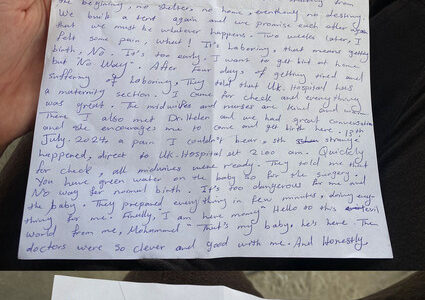 the beginning, no shelter, no home, everything, no destiny.
We built a tent again and we promise each other again
that we must be whatever happens. Two weeks later, I
felt some pain, what! It's Laboring, that means getting
birth, No. It's too early. I want to get birt at home
but "No Way". After Four days, of getting tired and
suffering of Laboring, They told that UK. Hospital has
a maternity section. I came for check and everything
was great. The midwifes and nurses are kind and
There I also met Dr.Helen and we had great conversation
and she encourages me to come and get birth here. 15th
July. 2024, a pain I couldn't bear, sth strange
happened, direct to UK-Hospital at 2:00 am. Quickly
for check, all midwives were ready. They told me that
You have green water on the baby go for the surgery.
No way for normal birth. It's too dangerous for me and
the baby. They prepared everything in few minutes, doing every
thing for me. Finally, I am here mama, "Hello to this evil
world from me, Mohammed" That's my baby, he's here. The
doctors were so clever and good with me. And Honestly,